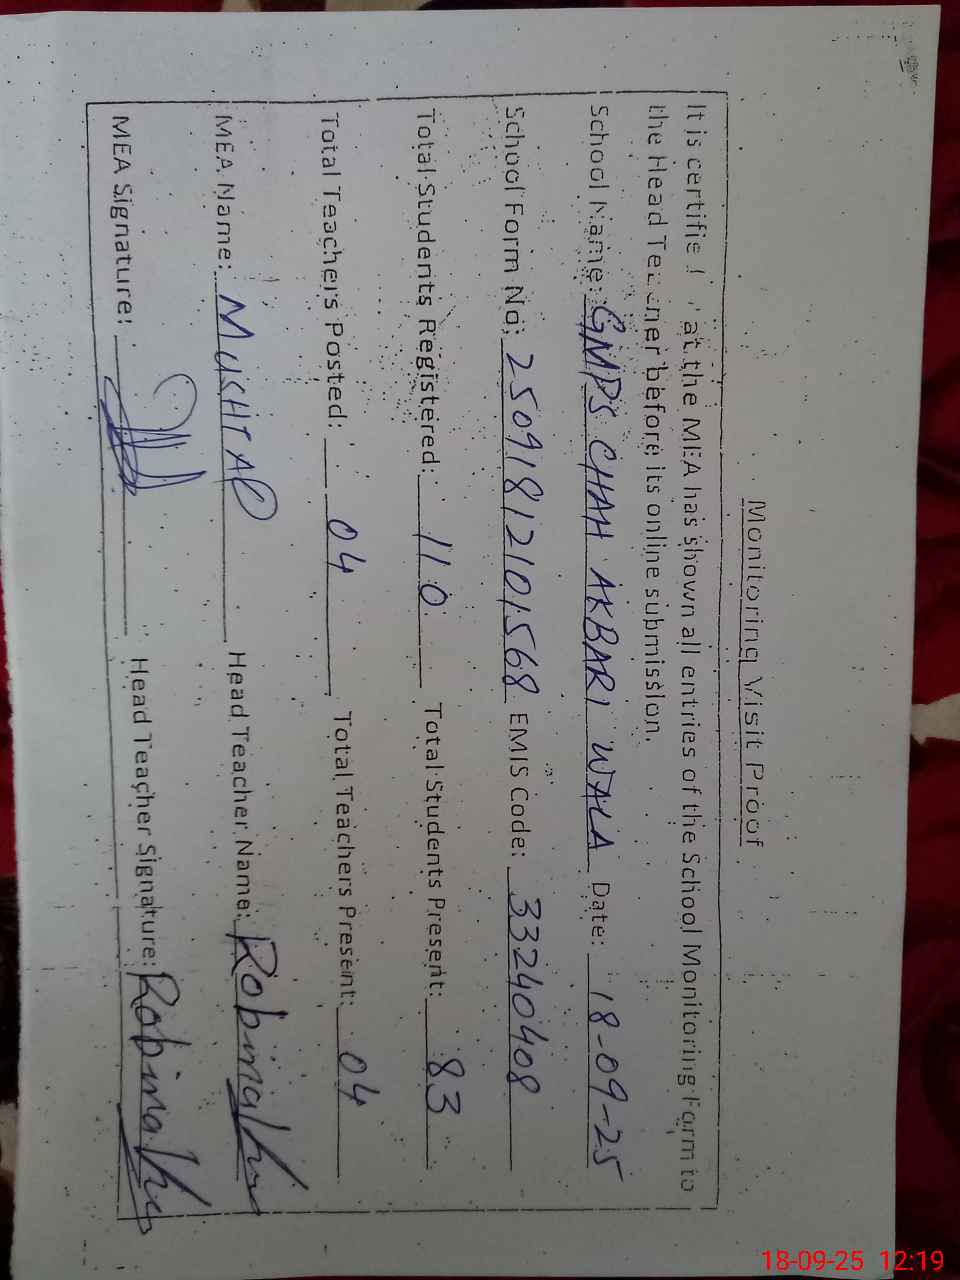 Monitoring Visit Proof
It is certified that the MEA has shown all entries of the School Monitoring Form to
the Head Teacher before its online submission.
School Name: GMPS CHAH AKBARI WALA Date: 18-09-25
School Form No: 25091812101568 EMIS Code: 33240408
Total Students Registered: 110 Total Students Present: 83
Total Teachers Posted: 04 Total Teachers Present: 04
MEA Name: MUSHTAQ Head Teacher Name: Robina
MEA Signature: Head Teacher Signature: Robina
18-09-25 12:19